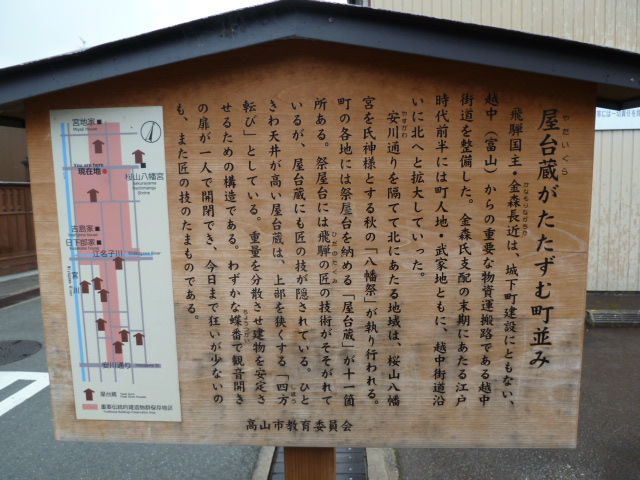 屋台蔵がたたずむ町並み
やたいくら
飛騨国主・金森長近は、城下町建設にともない、
かなもりながちか
越中（富山）からの重要な物資運搬路である越中
街道を整備した。金森氏支配の末期にあたる江戸
時代前半には町人地・武家地ともに、越中街道沿
いに北へと拡大していった。
安川通りを隔てて北にあたる地域は、桜山八幡
やすがわ
宮を氏神様とする秋の「八幡祭」が執り行われる。
町の各地には祭屋台を納める「屋台蔵」が十一箇
所ある。祭屋台には飛騨の匠の技術がそそがれて
いるが、屋台蔵にも匠の技が隠されている。ひと
きわ天井が高い屋台蔵は、上部を狭くする「四方
転び」としている。重量を分散させ建物を安定さ
せるための構造である。わずかな蝶番で観音開き
ちょうつがい
の扉が一人で開閉でき、今日まで狂いが少ないの
も、また匠の技のたまものである。
高山市教育委員会
宮地家
Miyaji House
You are here
現在地
桜山八幡宮
Sakurayama
Hachimangu
Shrine
吉島家
日下部家
江名子川
宮川
安川通り
屋台蔵
重要伝統的建造物群保存地区